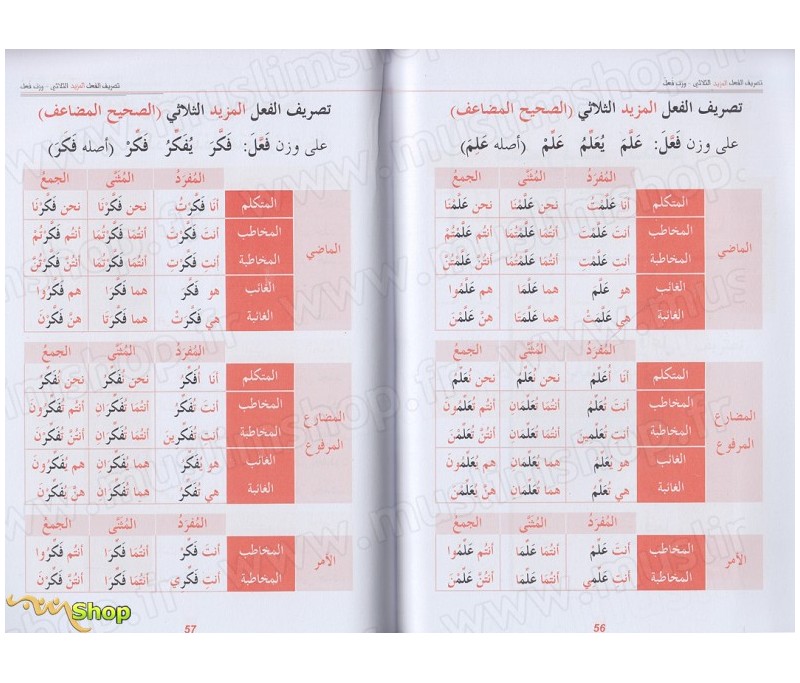 تصريف الفعل المزيد الثلاثي - وزن فعل
تصريف الفعل المزيد الثلاثي (الصحيح المضاعف)
على وزن فَعَّلَ: عَلَّمَ يُعَلِّمُ عَلِّمْ (أصله عَلِمَ)
المُفرَدُ المُثَنَّى الجمعُ
الماضي
المتكلم أنا عَلَّمْتُ نحن عَلَّمْنَا نحن عَلَّمْنَا
المخاطب أنتَ عَلَّمْتَ أنتُمَا عَلَّمْتُمَا أنتُم عَلَّمْتُمْ
المخاطبة أنتِ عَلَّمْتِ أنتُمَا عَلَّمْتُمَا أنتُنَّ عَلَّمْتُنَّ
الغائب هو عَلَّمَ هما عَلَّمَا هم عَلَّمُوا
الغائبة هي عَلَّمَتْ هما عَلَّمَتَا هنَّ عَلَّمْنَ
المُفرَدُ المُثَنَّى الجمعُ
المضارع المرفوع
المتكلم أنا أُعَلِّمُ نحن نُعَلِّمُ نحن نُعَلِّمُ
المخاطب أنتَ تُعَلِّمُ أنتُمَا تُعَلِّمَانِ أنتُم تُعَلِّمُونَ
المخاطبة أنتِ تُعَلِّمِينَ أنتُمَا تُعَلِّمَانِ أنتُنَّ تُعَلِّمْنَ
الغائب هو يُعَلِّمُ هما يُعَلِّمَانِ هم يُعَلِّمُونَ
الغائبة هي تُعَلِّمُ هما تُعَلِّمَانِ هنَّ يُعَلِّمْنَ
المُفرَدُ المُثَنَّى الجمعُ
الأمر
المخاطب أنتَ عَلِّمْ أنتُمَا عَلِّمَا أنتُم عَلِّمُوا
المخاطبة أنتِ عَلِّمِي أنتُمَا عَلِّمَا أنتُنَّ عَلِّمْنَ
56
تصريف الفعل المزيد الثلاثي - وزن فعل
تصريف الفعل المزيد الثلاثي (الصحيح المضاعف)
على وزن فَعَّلَ: فَكَّرَ يُفَكِّرُ فَكِّرْ (أصله فَكَرَ)
المُفرَدُ المُثَنَّى الجمعُ
الماضي
المتكلم أنا فَكَّرْتُ نحن فَكَّرْنَا نحن فَكَّرْنَا
المخاطب أنتَ فَكَّرْتَ أنتُمَا فَكَّرْتُمَا أنتُم فَكَّرْتُمْ
المخاطبة أنتِ فَكَّرْتِ أنتُمَا فَكَّرْتُمَا أنتُنَّ فَكَّرْتُنَّ
الغائب هو فَكَّرَ هما فَكَّرَا هم فَكَّرُوا
الغائبة هي فَكَّرَتْ هما فَكَّرَتَا هنَّ فَكَّرْنَ
المُفرَدُ المُثَنَّى الجمعُ
المضارع المرفوع
المتكلم أنا أُفَكِّرُ نحن نُفَكِّرُ نحن نُفَكِّرُ
المخاطب أنتَ تُفَكِّرُ أنتُمَا تُفَكِّرَانِ أنتُم تُفَكِّرُونَ
المخاطبة أنتِ تُفَكِّرِينَ أنتُمَا تُفَكِّرَانِ أنتُنَّ تُفَكِّرْنَ
الغائب هو يُفَكِّرُ هما يُفَكِّرَانِ هم يُفَكِّرُونَ
الغائبة هي تُفَكِّرُ هما تُفَكِّرَانِ هنَّ يُفَكِّرْنَ
المُفرَدُ المُثَنَّى الجمعُ
الأمر
المخاطب أنتَ فَكِّرْ أنتُمَا فَكِّرَا أنتُم فَكِّرُوا
المخاطبة أنتِ فَكِّرِي أنتُمَا فَكِّرَا أنتُنَّ فَكِّرْنَ
57
Shop
www.muslimshop.fr